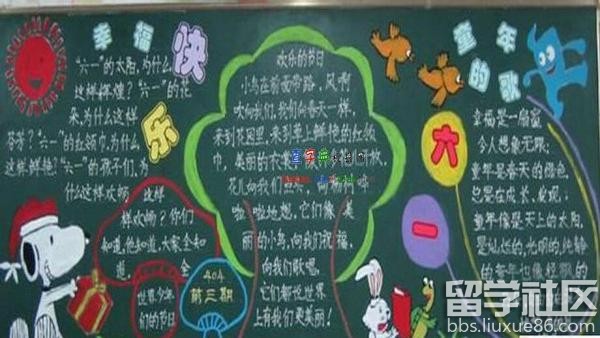 幸福快乐
"六一"的太阳,为什么
这样辉煌?"六一"的花
朵,为什么这样
芬芳?"六一"的红领巾,为什么
这样鲜艳?"六一"的孩子们,为
什么这样欢畅?这样
样欢畅?你们
知道,他知道,大家全知
道。全
世界少年
们的节日
404
第三期
欢乐的节日
小鸟在前面带路,风啊
吹向我们,我们向春天一样,
来到花园里,来到草上鲜艳的红领
巾,美丽的衣
花儿向我们
啦啦地想,它们像美
丽的小鸟,向我们祝福,
向我们歌唱,
它们都说世界
上有我们更美丽!
童年的歌
六一
幸福是一扇窗
令人想象无限;
童年是春天的绿色,
总是在成长、发现;
童年像是天上的太阳,
是灿烂的,光明的,纯静
的童年也像轻飘的
留学社区
bbs.liuxue86.com